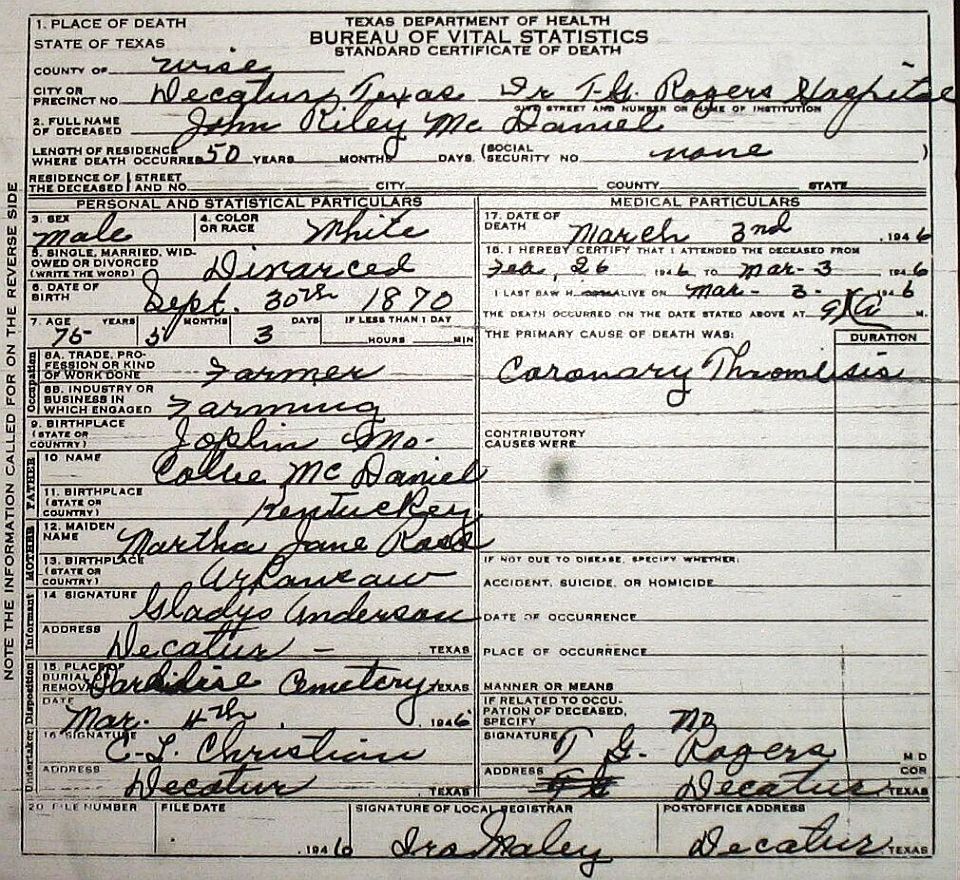 TEXAS DEPARTMENT OF HEALTH
BUREAU OF VITAL STATISTICS
STANDARD CERTIFICATE OF DEATH
NOTE THE INFORMATION CALLED FOR ON THE REVERSE SIDE
1. PLACE OF DEATH
STATE OF TEXAS
COUNTY OF Wise
CITY OR PRECINCT NO. Decatur, Texas Dr T.G. Rogers Hospital
GIVE STREET AND NUMBER OR NAME OF INSTITUTION
2. FULL NAME OF DECEASED John Riley McDaniel
LENGTH OF RESIDENCE WHERE DEATH OCCURRED 50 YEARS MONTHS DAYS. (SOCIAL SECURITY NO. none )
RESIDENCE OF THE DECEASED STREET AND NO. CITY COUNTY STATE
PERSONAL AND STATISTICAL PARTICULARS
3. SEX Male
4. COLOR OR RACE White
5. SINGLE, MARRIED, WIDOWED OR DIVORCED (WRITE THE WORD) Divorced
6. DATE OF BIRTH Sept. 30th 1870
7. AGE 75 YEARS 5 MONTHS 3 DAYS IF LESS THAN 1 DAY HOURS MIN
Occupation
8A. TRADE, PROFESSION OR KIND OF WORK DONE Farmer
8B. INDUSTRY OR BUSINESS IN WHICH ENGAGED Farming
9. BIRTHPLACE (STATE OR COUNTRY) Joplin Mo.
FATHER
10 NAME McDaniel
11. BIRTHPLACE (STATE OR COUNTRY) Kentuckey
MOTHER
12. MAIDEN NAME Martha Jane
13. BIRTHPLACE (STATE OR COUNTRY) Arkansaw
Informant
14 SIGNATURE Gladys Anderson
ADDRESS Decatur - TEXAS
Disposition
15. PLACE OF BURIAL REMOVAL Paridise Cemetery TEXAS
DATE Mar. 4th, 1946
Undertaker
16 SIGNATURE C-L. Christian
ADDRESS Decatur TEXAS
MEDICAL PARTICULARS
17. DATE OF DEATH March 3rd, 1946
18. I HEREBY CERTIFY THAT I ATTENDED THE DECEASED FROM
Feb, 26 1946 TO Mar-3 1946
I LAST SAW H ALIVE ON Mar-3- 1946
THE DEATH OCCURRED ON THE DATE STATED ABOVE AT 9 A M.
THE PRIMARY CAUSE OF DEATH WAS: DURATION
Coronary Thrombsis
CONTRIBUTORY CAUSES WERE
IF NOT DUE TO DISEASE, SPECIFY WHETHER:
ACCIDENT, SUICIDE, OR HOMICIDE
DATE OF OCCURRENCE
PLACE OF OCCURRENCE
MANNER OR MEANS
IF RELATED TO OCCUPATION OF DECEASED, SPECIFY No
SIGNATURE T G. Rogers M D
ADDRESS Decatur COR TEXAS
20. FILE NUMBER
FILE DATE 1946
SIGNATURE OF LOCAL REGISTRAR Ira Maley
POSTOFFICE ADDRESS Decatur TEXAS